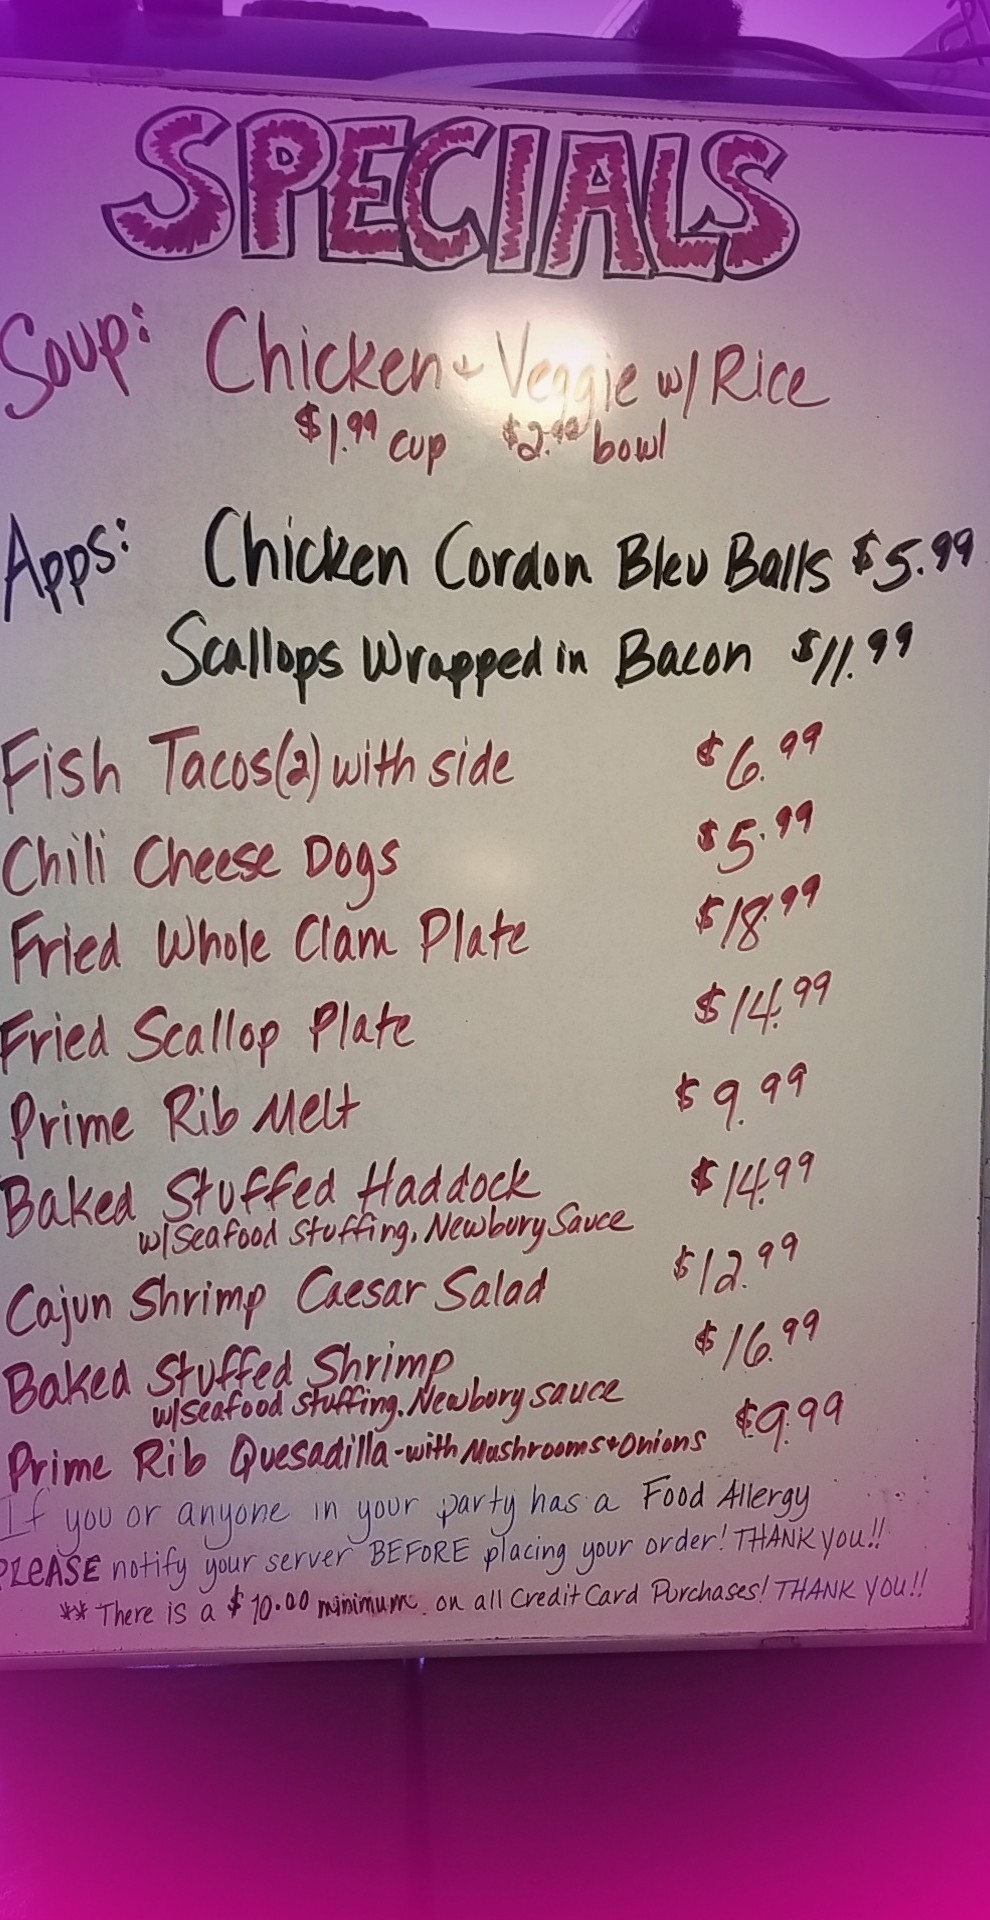 SPECIALS
Soup: Chicken + Veggie w/ Rice
$1.99 cup $2.99 bowl
Apps: Chicken Cordon Bleu Balls $5.99
Scallops Wrapped in Bacon $11.99
Fish Tacos(2) with side $6.99
Chili Cheese Dogs $5.99
Fried Whole Clam Plate $18.99
Fried Scallop Plate $14.99
Prime Rib Melt $9.99
Baked Stuffed Haddock $14.99
w/Seafood Stuffing, Newbury Sauce
Cajun Shrimp Caesar Salad $12.99
Baked Stuffed Shrimp $16.99
w/seafood stuffing, Newbury sauce
Prime Rib Quesadilla-with Mushrooms+Onions $9.99
If you or anyone in your party has a Food Allergy
PLEASE notify your server BEFORE placing your order! THANK you!!
** There is a $10.00 minimum on all Credit Card Purchases! THANK YOU!!